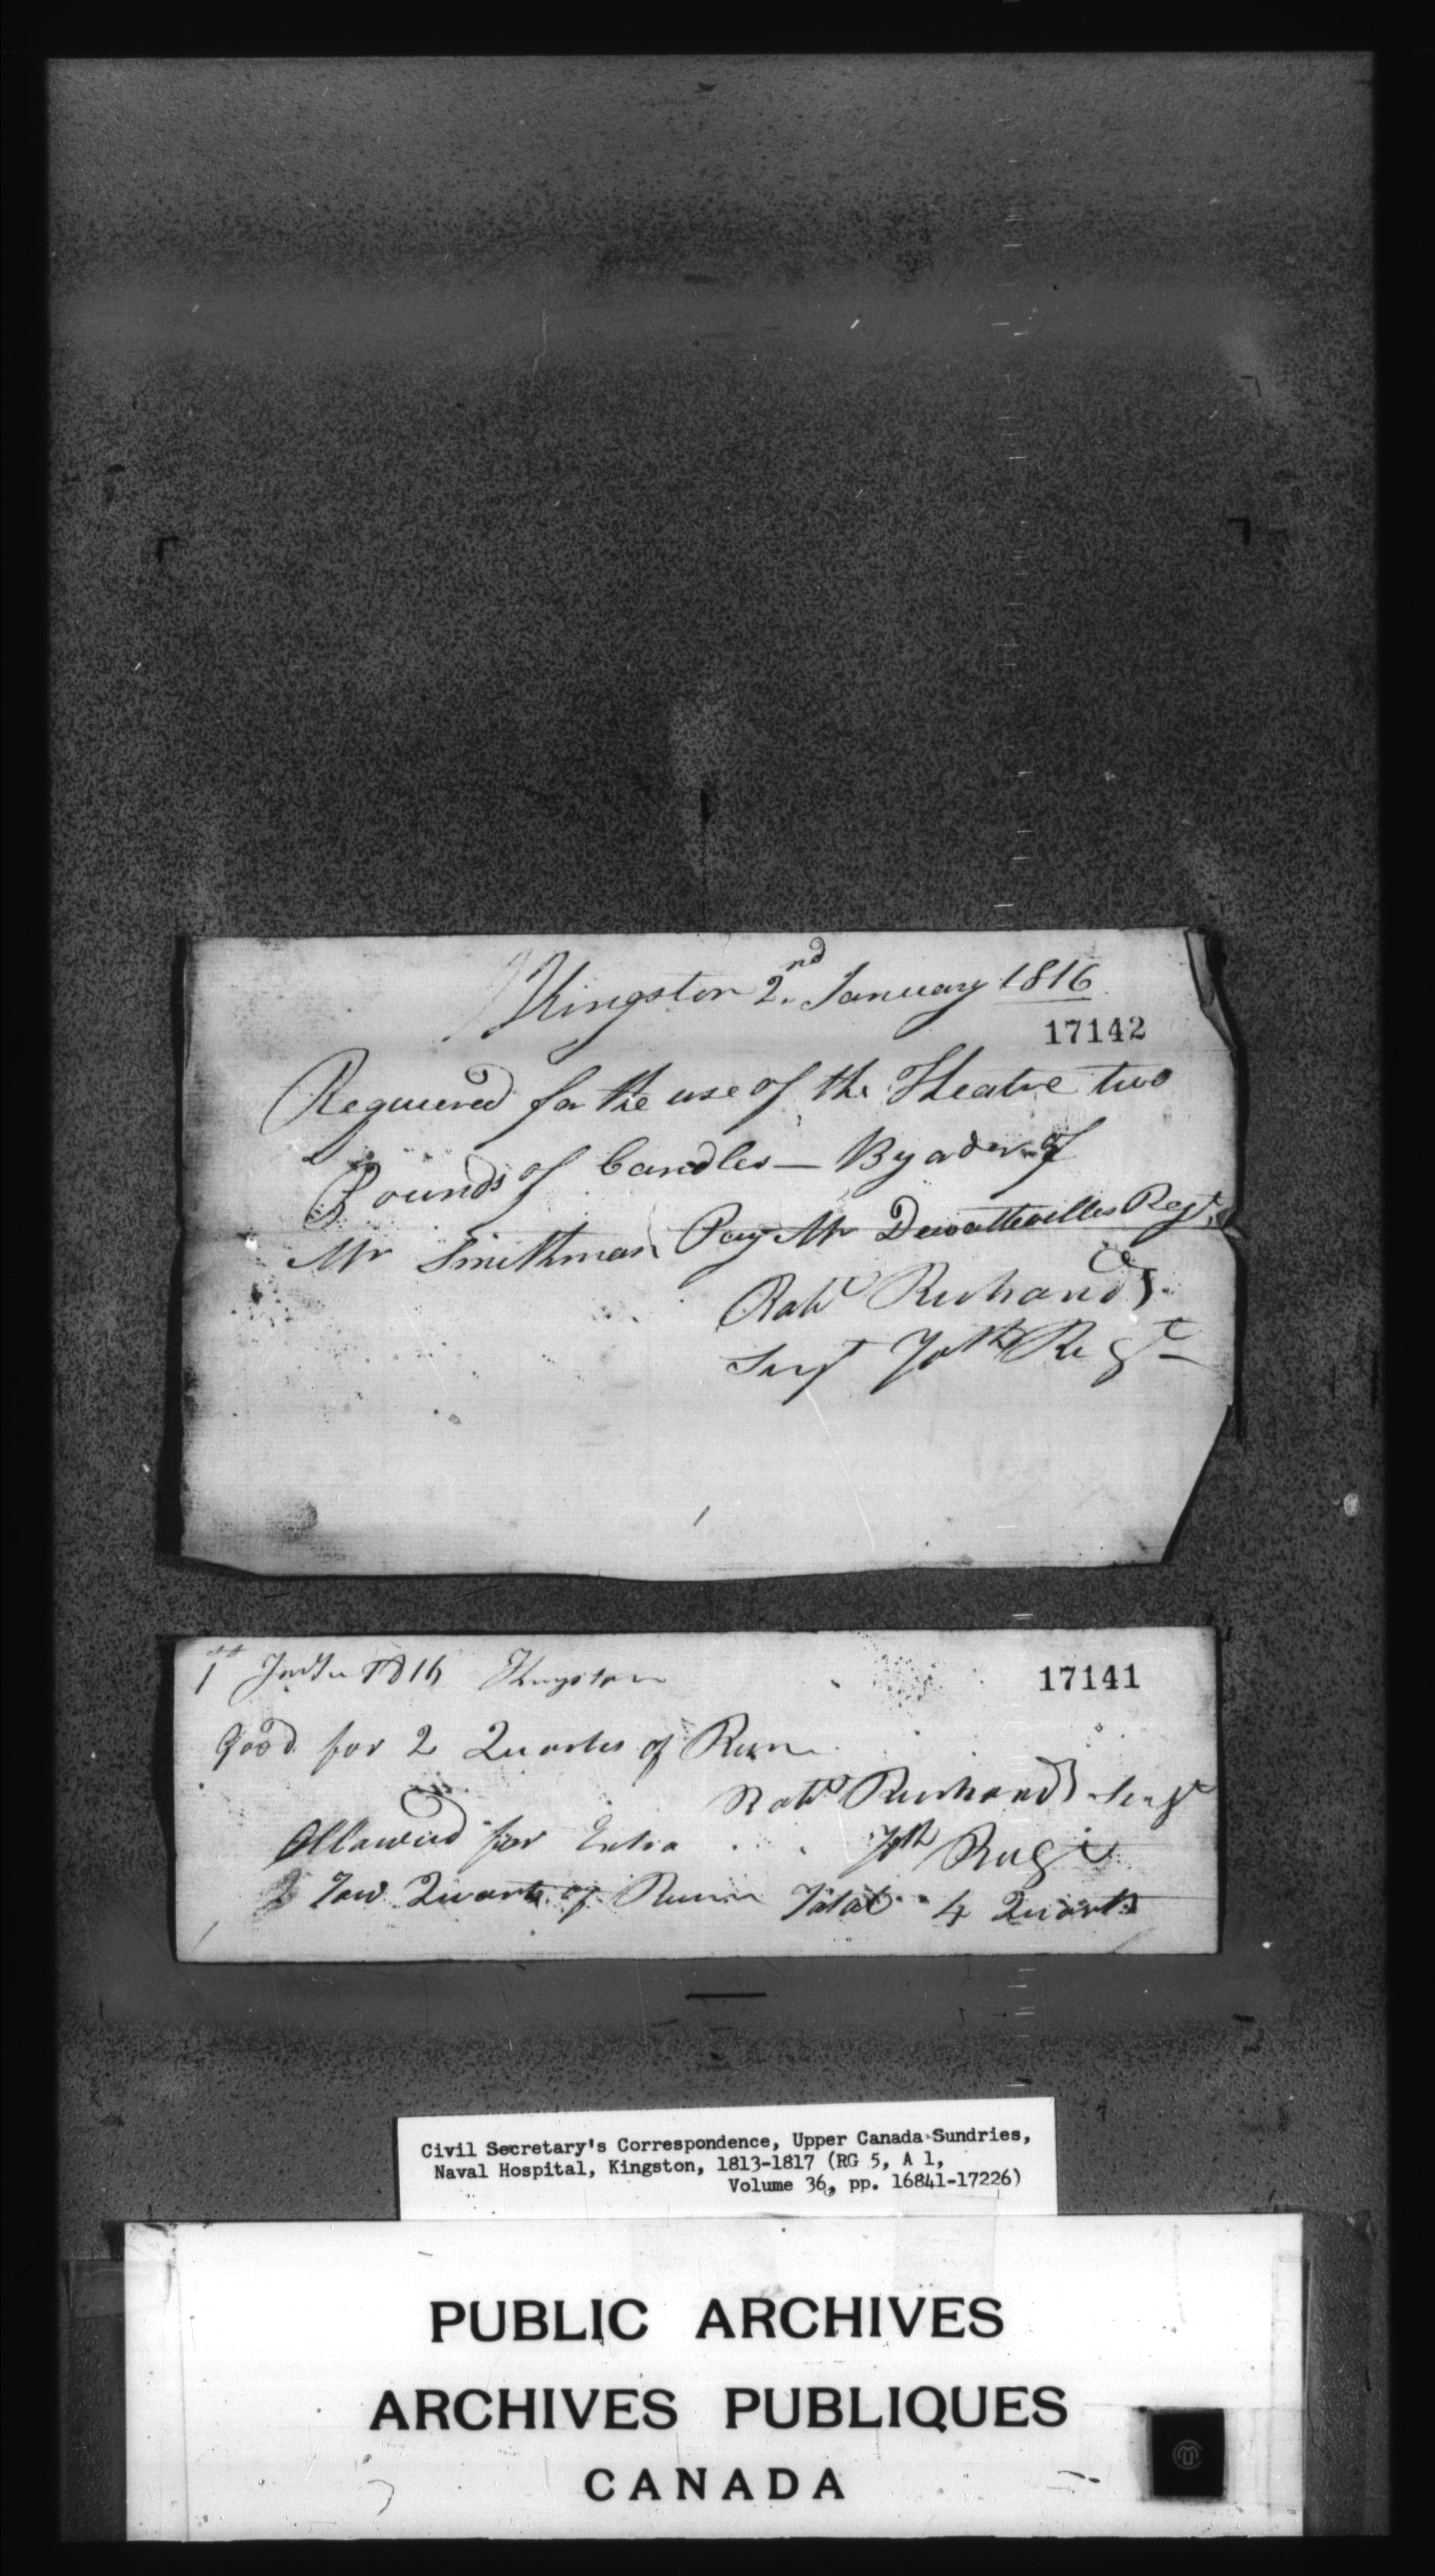 Kingston 2nd January 1816
17142
Requiered for the use of the Theatre two
Pounds of Candles — By order of
Mr Smithman Pay Mr Dewattevilles Regt
Robt
Sergt 70th Regt
1st 1816 Kingston
17141
Good for 2 Quartes of Rum
Robt Sergt
Allowed for Extra 70th Regt
2 Tow Quarts of Rum Total 4 Quarts
Civil Secretary's Correspondence, Upper Canada Sundries,
Naval Hospital, Kingston, 1813-1817 (RG 5, A 1,
Volume 36, pp. 16841-17226)
PUBLIC ARCHIVES
ARCHIVES PUBLIQUES
CANADA